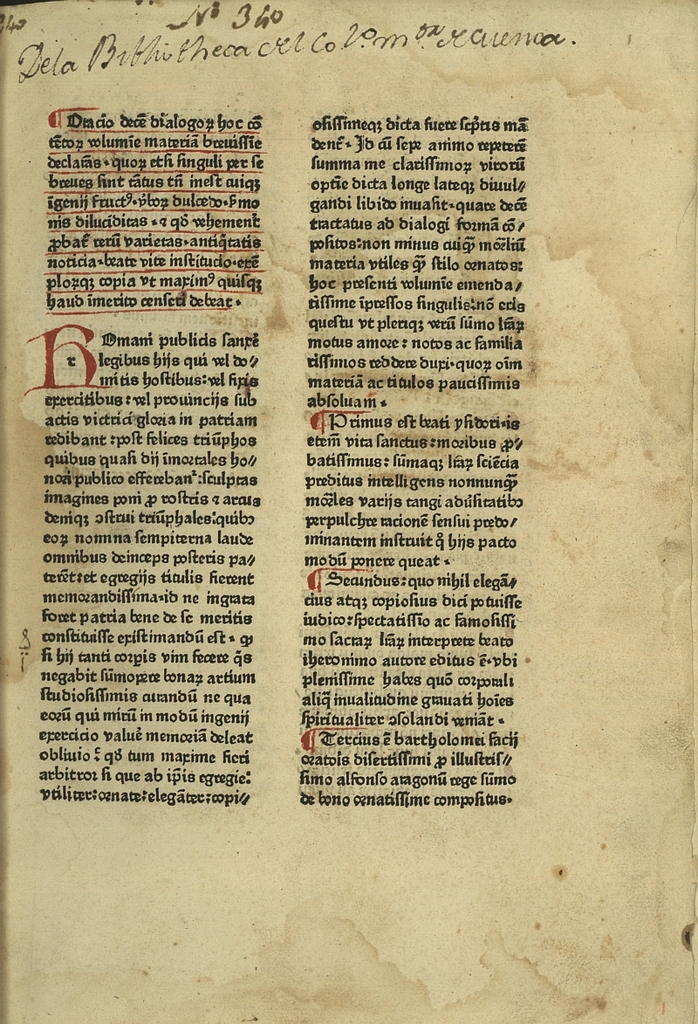 340
Nº 340
Dela Bibliotheca del Colº. mor de cuenca.
¶ Oracio decē dialogoꝝ hoc cō
tētoꝝ volumīe materiā breuissīe
declarās · quoꝝ etsi singuli per se
breues sint tātus tn̄ inest cuiqꝫ
īgenij fructꝰ · v̄boꝝ dulcedo · s̄mo
nis diluciditas · ⁊ qđ vehementˀ
ꝓbat̄ rerū varietas · antiq̄tatis
noticia · beate vite institucio · exē
ploꝝqꝫ copia vt maximꝰ quisqꝫ
haud īmerito censeri debeat ·
ROmani publicis sanxē
r legibus hijs qui vel do⸗
mitis hostibus : vel fixis
exercitibus : vel prouincijs sub
actis victrici gloria in patriam
redibant : post felices triūphos
quibus quasi dij īmortales ho⸗
nori publico efferebanˀ : sculptas
imagines poni ꝓ rostris ⁊ arcus
deniqꝫ ↄstrui triūphales : quibꝰ
eoꝝ nomina sempiterna laude
omnibus deinceps posteris pa⸗
terēt : et egregijs titulis fierent
memorandissima · id ne ingrata
foret patria bene de se meritis
constituisse existimandū est · ꝙ
si hij tanti corpīs vim fecere q̄s
negabit sūmopere bonaꝝ artium
studiosissimis curandū ne qua
eorū qui mirū in modū ingenij
exercicio valuē memoriā deleat
obliuio : qđ tum maxime fieri
arbitror si que ab ip̄is egregie :
vtiliter : ornate : elegāter : copi⸗
osissimeqꝫ dicta fuere scp̄tis mā
denˀ · Id cū sepe animo repeterē
summa me clarissimoꝝ viroꝝ
optīe dicta longe lateqꝫ diuul⸗
gandi libido inuasit · quare decē
tractatus ad dialogi formā cō⸗
positos : non minus cuiqꝫ morliū
materia vtiles qꝫ stilo ornatos :
hoc presenti volumīe emenda⸗
tissime īpressos singulis : nō eris
questu vt pleriqꝫ verū sūmo lr̄aꝝ
motus amore : notos ac familia
rissimos reddere duxi · quoꝝ oīm
materiā ac titulos paucissimis
absoluam ·
¶ Primus est beati ysidori · is
etem̄ vita sanctus : moribus ꝓ⸗
batissimus : sūmaqꝫ lr̄aꝝ sciēcia
preditus intelligens nonnunqꝫ
mor̄les varijs tangi aduˀsitatibꝰ
perpulchre racionē sensui predo⸗
minantem instruit q̊ hijs pacto
modū ponere queat ·
¶ Secundus : quo nihil elegā⸗
cius atqꝫ copiosius dici potuisse
iudico : spectatissīo ac famosissi
mo sacraꝝ lr̄aꝝ interprete beato
iheronimo autore editus ē · vbi
plenissime habes quō corporali
aliq̄ inualitudine grauati hoīes
spiritualiter ↄsolandi veniāt ·
¶ Tercius ē bartholomei facij
oratoīs disertissimi ꝓ illustris⸗
simo alfonso aragonū rege sūmo
de bono ornatissime compositus ·